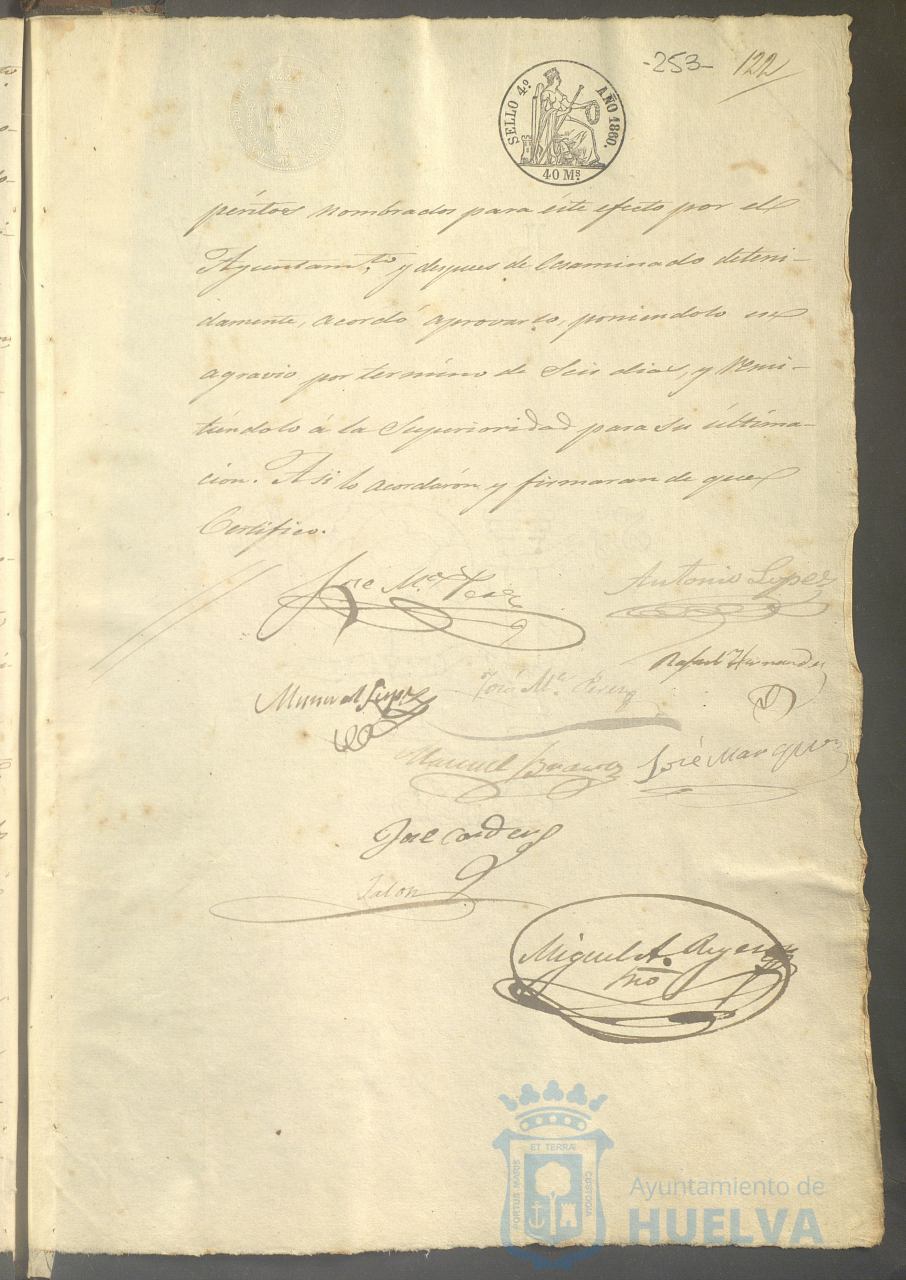 -253- 122
SELLO 4.º AÑO 1860.
40 M.s
péritos nombrados para éste efecto por el
Ayuntam.to y despues de Ecsaminado deteni-
damente, acordó aprovarlo, poniendolo en
agravio por termino de Seis dias, y Remi-
tiéndolo á la Superioridad para su última-
cion. Asi lo acordarón y firmaran de que
Certifico.
José M.a Antonio Lopez
Rafael Hernandez
Manuel Lopez José M.a Perez
Manuel José Marquez
José Cordero
Miguel A. Reyes
srio
ET TERRA
PORTUS MARIS CUSTODIA
Ayuntamiento de
HUELVA